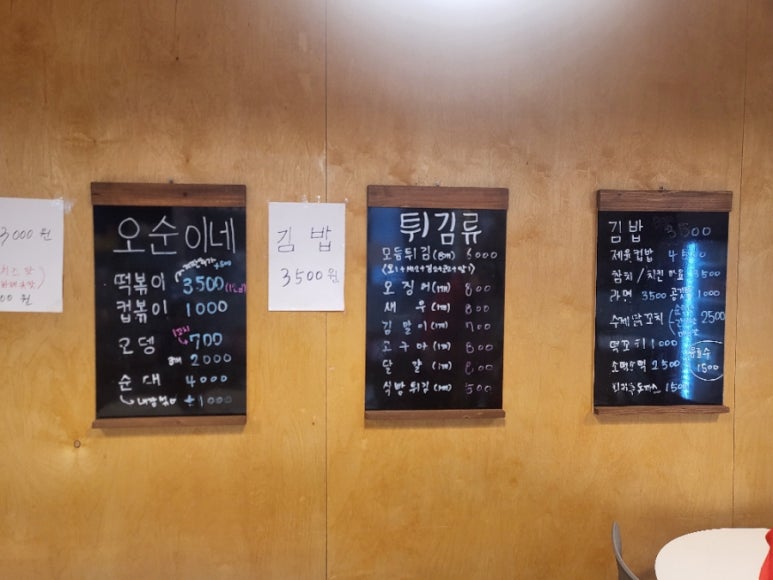 3000원
치즈
00원
오순이네
떡볶이 3500 (1인분)
컵볶이 1000
오뎅 700
2000
순대 4000
+1000
김밥
3500원
튀김류
모듬튀김
오징어(1개) 800
새우(1개) 800
김말이(1개) 700
고구마(1개) 800
달걀(1개) 800
식빵튀김(1개) 500
김밥 3500
제육컵밥 4500
참치/치킨마요 3500
라면 3500 공깃 1000
수제닭꼬치 2500
떡꼬치 1000
소떡소떡 2500
음료수
1500
피카츄돈까스 1500